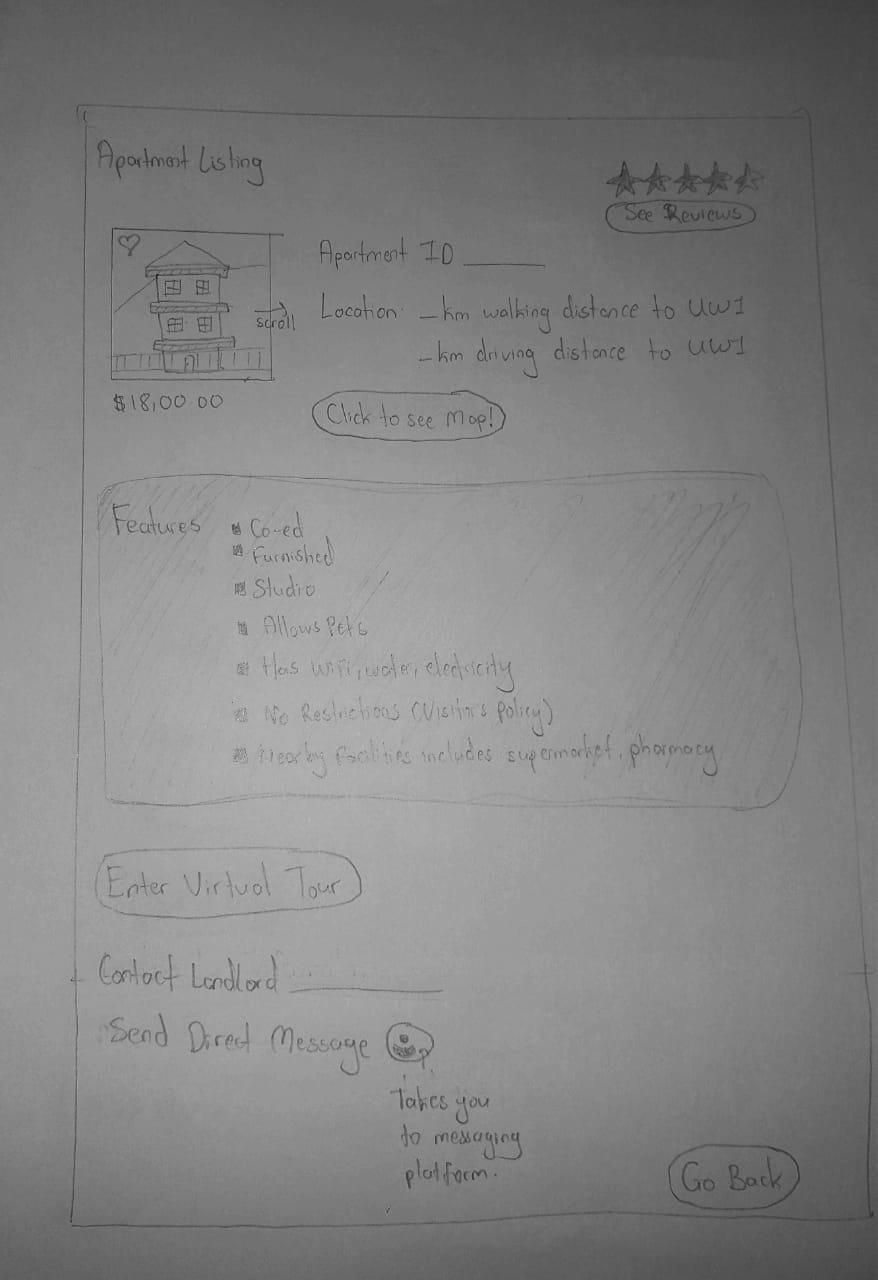 Apartment Listing
See Reviews
Apartment ID ______
scroll
$18,00.00
Location: _km walking distance to UWI
_km driving distance to UWI
Click to see Map!
Features
Co-ed
Furnished
Studio
Allows Pets
Has wifi, water, electricity
No Restrictions (Visitors Policy)
Nearby facilities includes supermarket, pharmacy
Enter Virtual Tour
Contact Landlord ______
Send Direct Message
Takes you
to messaging
platform.
Go Back